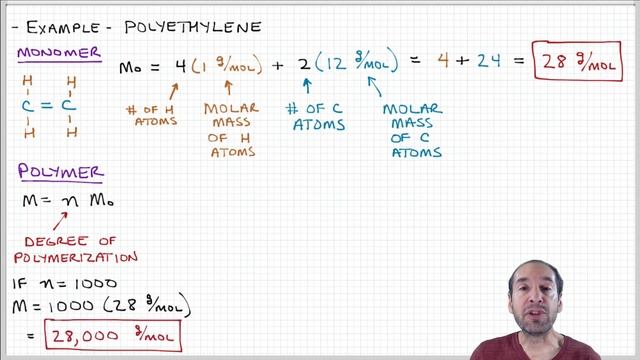 - EXAMPLE - POLYETHYLENE
MONOMER
H H
C = C
H H
M₀ = 4 (1 g/MOL) + 2 (12 g/MOL) = 4 + 24 = 28 g/MOL
# OF H ATOMS
MOLAR MASS OF H ATOMS
# OF C ATOMS
MOLAR MASS OF C ATOMS
POLYMER
M = n M₀
DEGREE OF
POLYMERIZATION
IF n = 1000
M = 1000 (28 g/MOL)
= 28,000 g/MOL